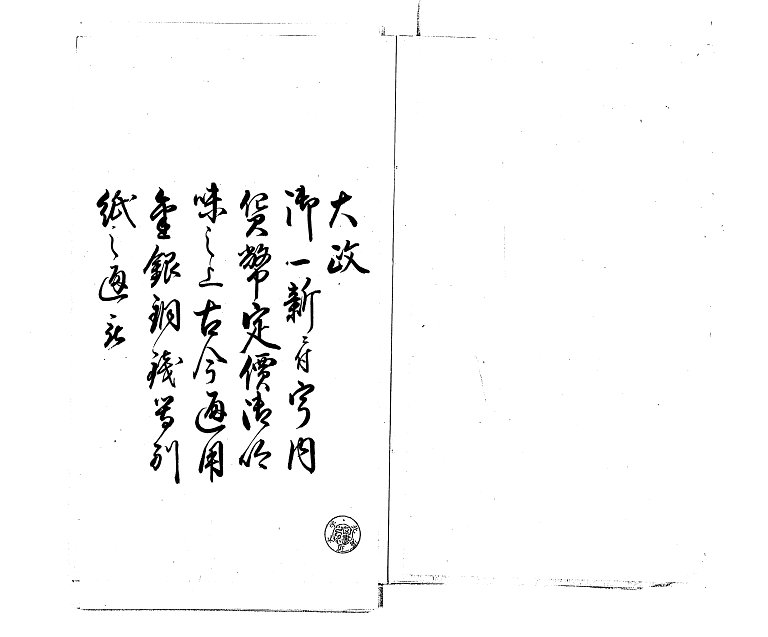 大政
御一新ニ付宇内
貨幣定價御吟
味之上古今通用
金銀銅錢等別
紙之通被